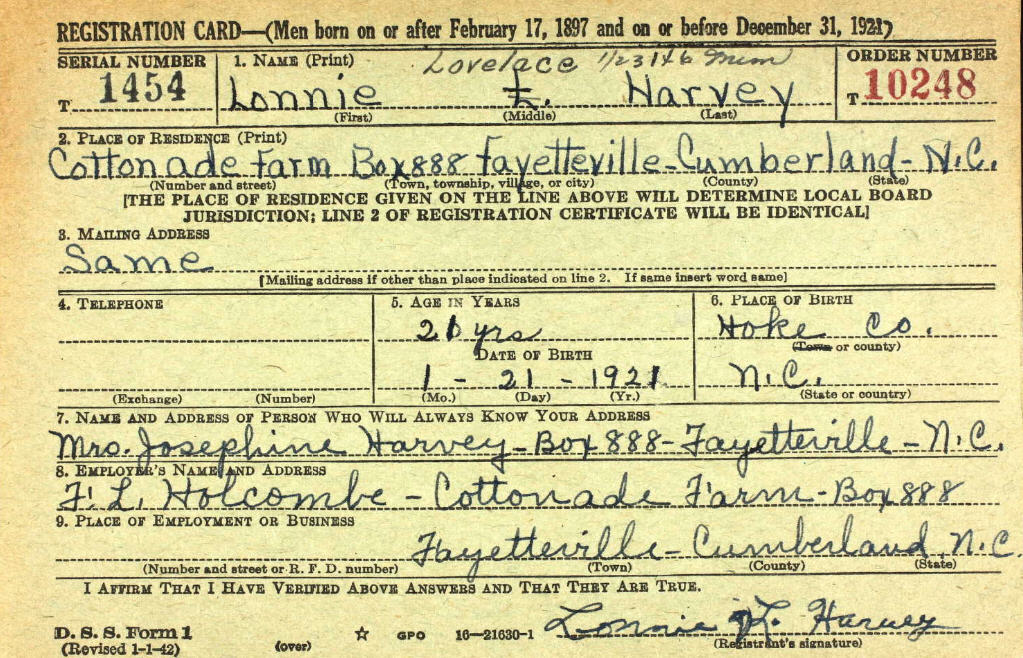 REGISTRATION CARD—(Men born on or after February 17, 1897 and on or before December 31, 1921)
SERIAL NUMBER
T 1454
1. NAME (Print)
Lovelace 1/23/46
Lonnie L. Harvey
(First) (Middle) (Last)
ORDER NUMBER
T 10248
2. PLACE OF RESIDENCE (Print)
Cottonade Farm Box 888 Fayetteville - Cumberland - N.C.
(Number and street) (Town, township, village, or city) (County) (State)
[THE PLACE OF RESIDENCE GIVEN ON THE LINE ABOVE WILL DETERMINE LOCAL BOARD
JURISDICTION; LINE 2 OF REGISTRATION CERTIFICATE WILL BE IDENTICAL]
3. MAILING ADDRESS
Same
[Mailing address if other than place indicated on line 2. If same insert word same]
4. TELEPHONE
(Exchange) (Number)
5. AGE IN YEARS
21 yrs
DATE OF BIRTH
1 - 21 - 1921
(Mo.) (Day) (Yr.)
6. PLACE OF BIRTH
Hoke Co.
(Town or county)
N.C.
(State or country)
7. NAME AND ADDRESS OF PERSON WHO WILL ALWAYS KNOW YOUR ADDRESS
Mrs. Josephine Harvey - Box 888 - Fayetteville - N.C.
8. EMPLOYER'S NAME AND ADDRESS
F. L. Holcombe - Cottonade Farm - Box 888
9. PLACE OF EMPLOYMENT OR BUSINESS
Fayetteville - Cumberland, N.C.
(Number and street or R. F. D. number) (Town) (County) (State)
I AFFIRM THAT I HAVE VERIFIED ABOVE ANSWERS AND THAT THEY ARE TRUE.
D. S. S. Form 1
(Revised 1-1-42)
(over)
☆ GPO 16—21630-1
Lonnie L. Harvey
(Registrant's signature)